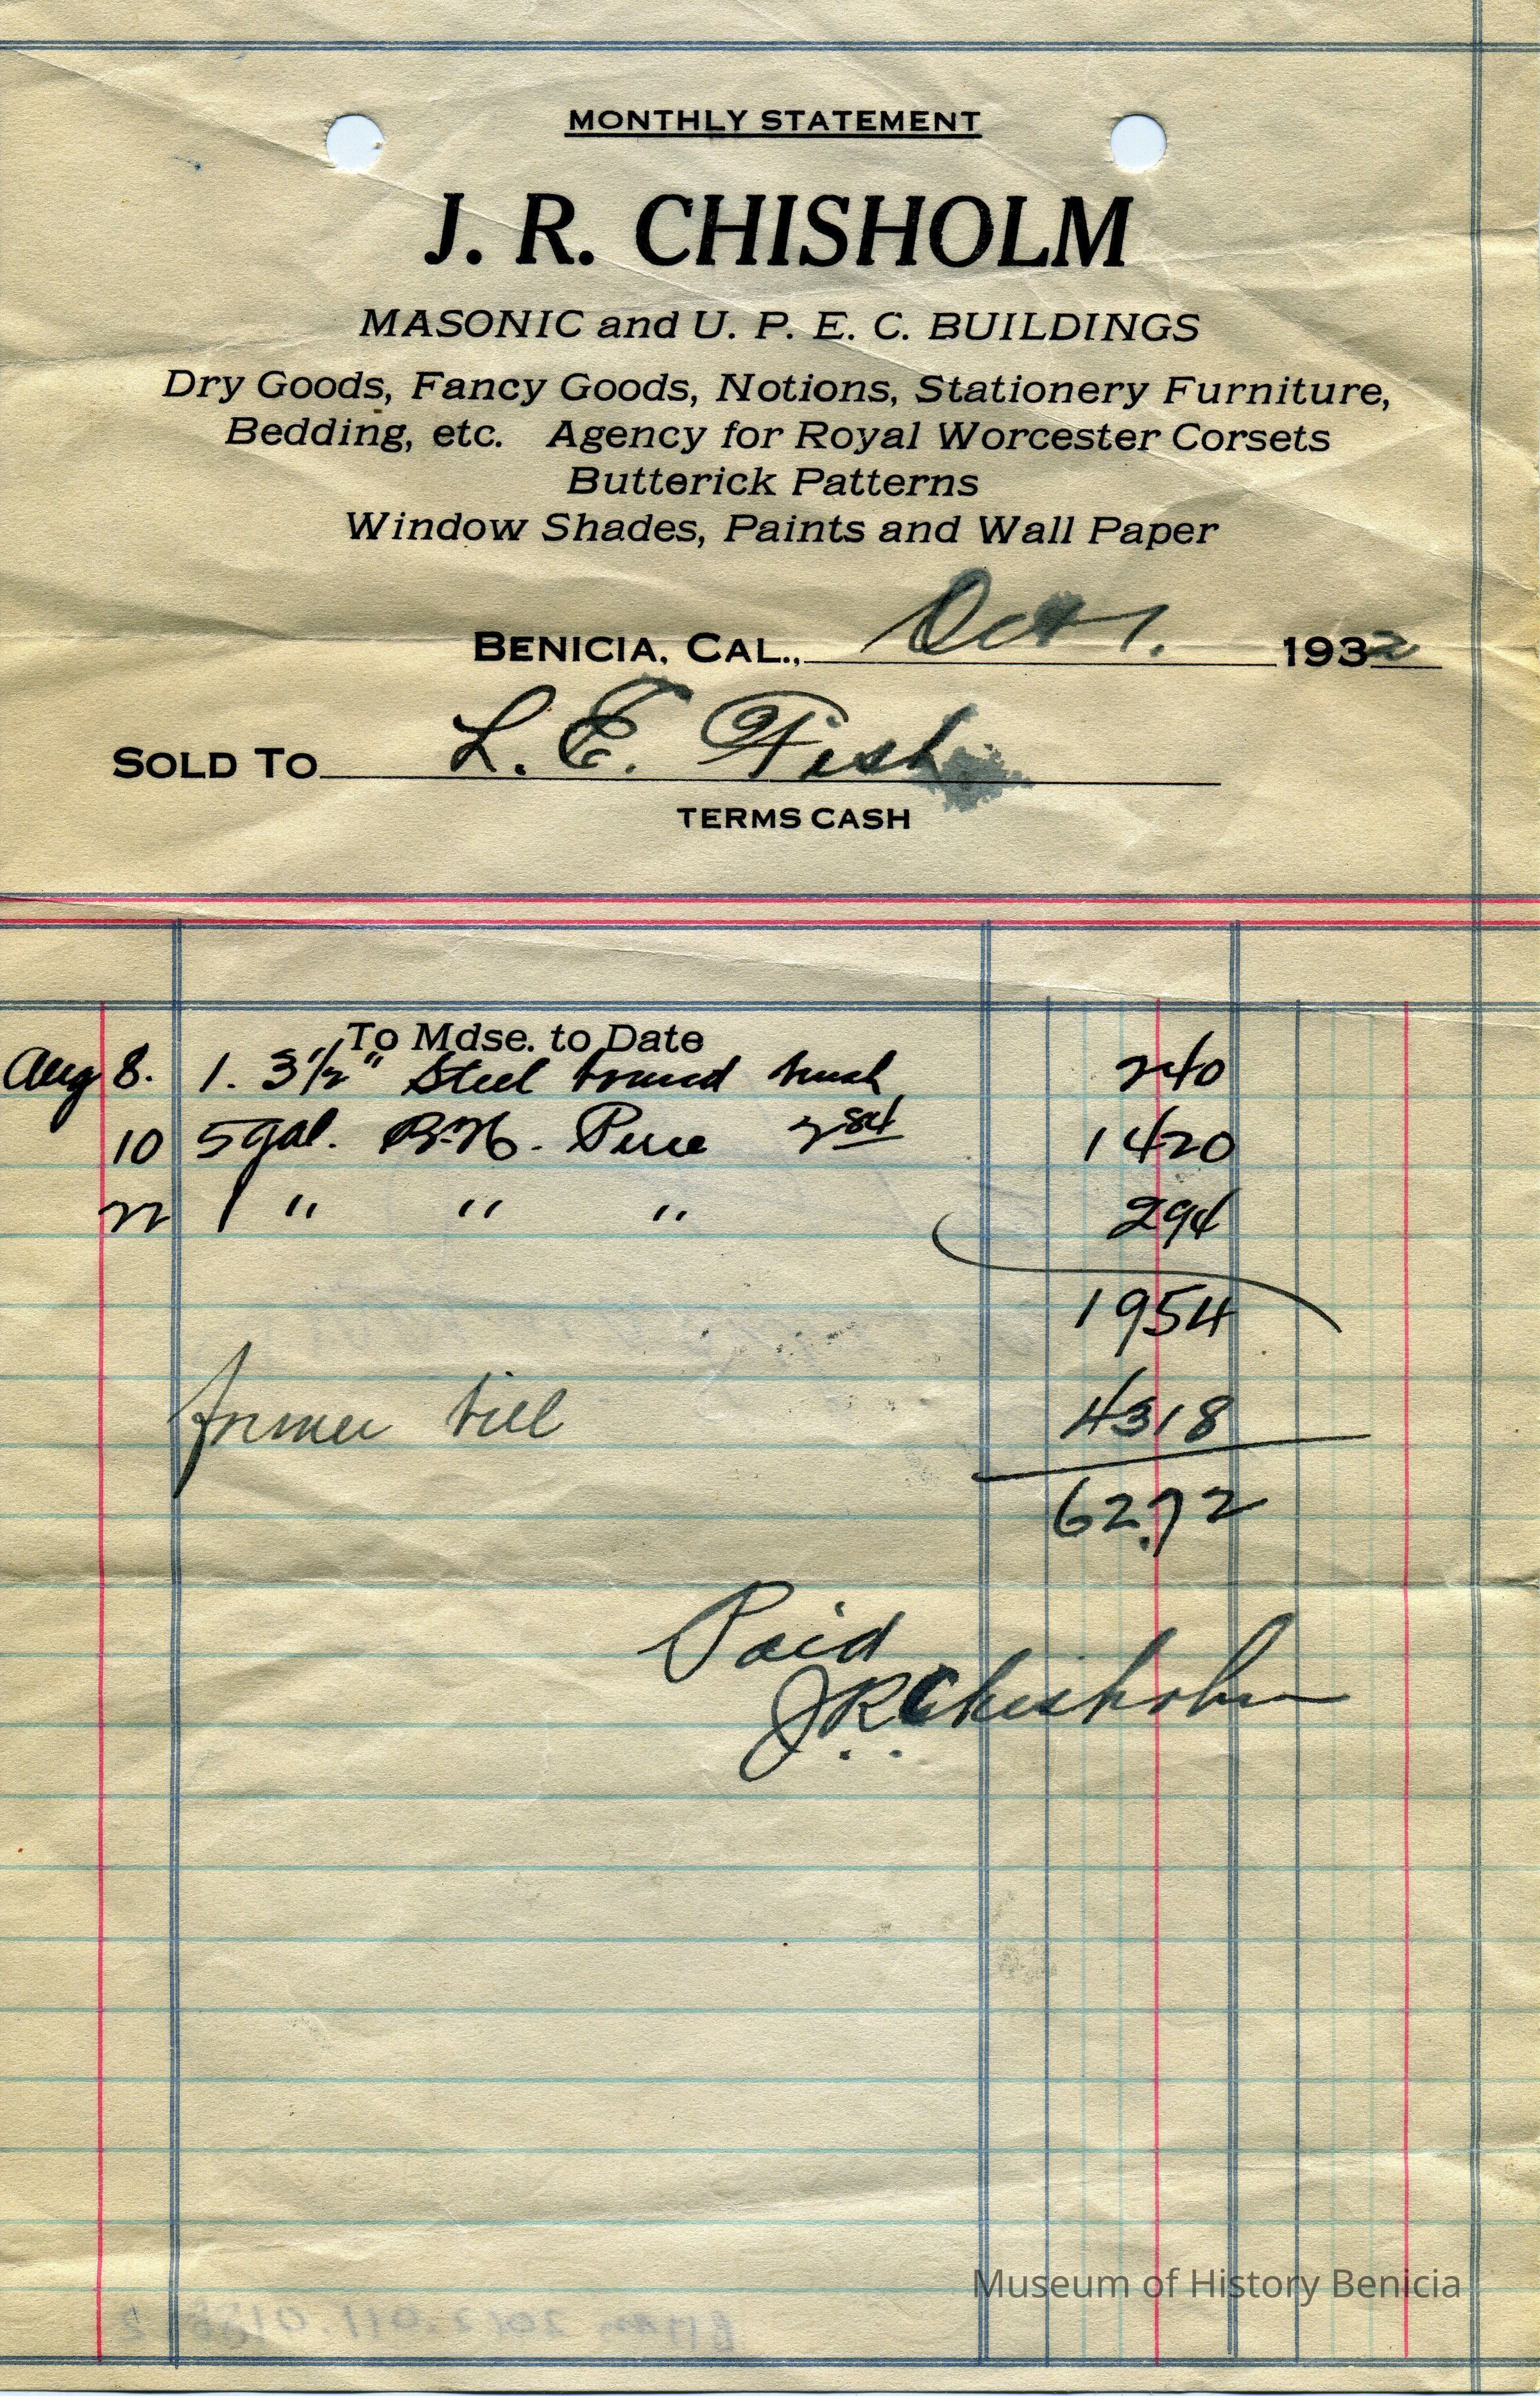 MONTHLY STATEMENT
J. R. CHISHOLM
MASONIC and U. P. E. C. BUILDINGS
Dry Goods, Fancy Goods, Notions, Stationery Furniture,
Bedding, etc. Agency for Royal Worcester Corsets
Butterick Patterns
Window Shades, Paints and Wall Paper
BENICIA, CAL., Oct 1. 1932
SOLD TO L. E. Fish
TERMS CASH
To Mdse. to Date
Aug 8. 1. 3 1/2" Steel bound brush 240
10 5 gal. B.H. Pure 284 1420
22 1 " " " 294
1954
former bill 4318
62.72
Paid
J.R. Chisholm
Museum of History Benicia